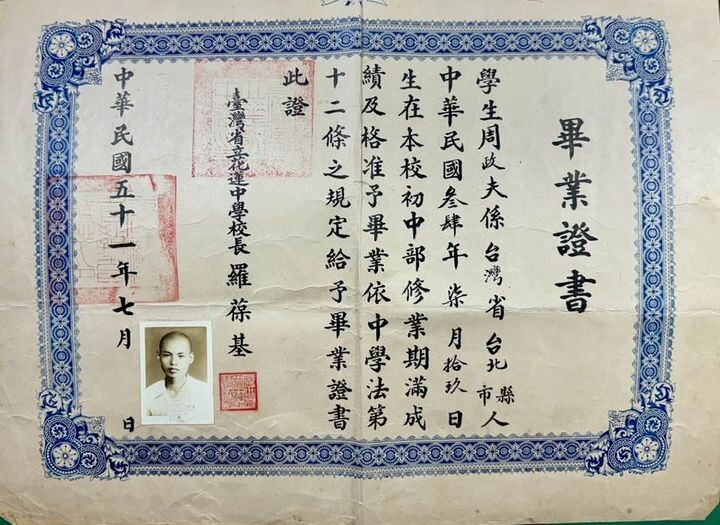 畢業證書
學生周政夫係台灣省台北縣市人
中華民國叁肆年柒月拾玖日
生在本校初中部修業期滿成
績及格准予畢業依中學法第
十二條之規定給予畢業證書
此證
臺灣省立花蓮中學校長羅葆基
中華民國五十一年七月 日